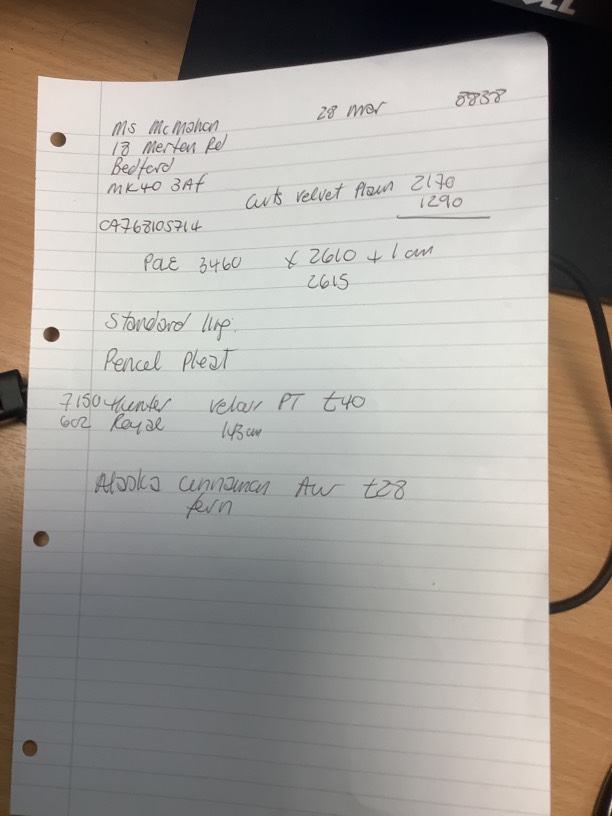 DELL
28 Mar 8838
Ms McMahon
18 Merton Rd
Bedford
MK40 3Af
Curts velvet Plain 2170
1290
07768105714
Pole 3460 x 2610 + 1 cm
2615
Standard
Pencel Pleat
7150 Hunter velour PT £40
602 Royal 143cm
Alaska cinnaman AW £28
fern